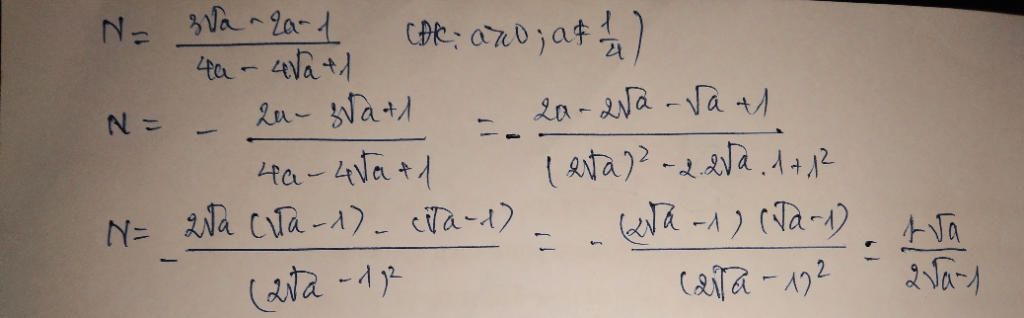 N = (3√a - 2a - 1)/(4a - 4√a + 1) (ĐK: a≥0; a≠1/4)
N = - (2a - 3√a + 1)/(4a - 4√a + 1) = - (2a - 2√a - √a + 1)/((2√a)² - 2.2√a.1 + 1²)
N = - (2√a(√a - 1) - (√a - 1))/((2√a - 1)²) = - ((2√a - 1)(√a - 1))/((2√a - 1)²) = (1 - √a)/(2√a - 1)